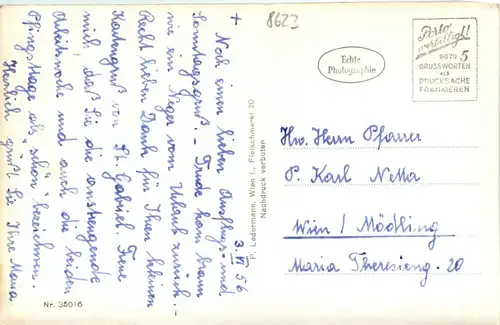 8623
+ Noch einen lieben Ausflugs- und
Sonntagsgruß. - Trude kam braun
wie ein Neger vom Urlaub zurück. -
Recht lieben Dank für Ihren kleinen
Kartengruß von St. Gabriel. Freue
mich, daß Sie die anstrengende
Arbeitswoche und auch die beiden
Pfingsttage als "schön" bezeichnen.
Herzlich grüßt Sie Ihre Maria
3. VI. 56
Nr. 35016
P. Ledermann, Wien I., Fleischmarkt 20
Nachdruck verboten
Echte
Photographie
Porto
verbilligt!
BIS ZU 5
GRUSSWORTEN
ALS
DRUCKSACHE
FRANKIEREN
Hw. Herrn Pfarrer
P. Karl Netta
Wien / Mödling
Maria Theresieng. 20